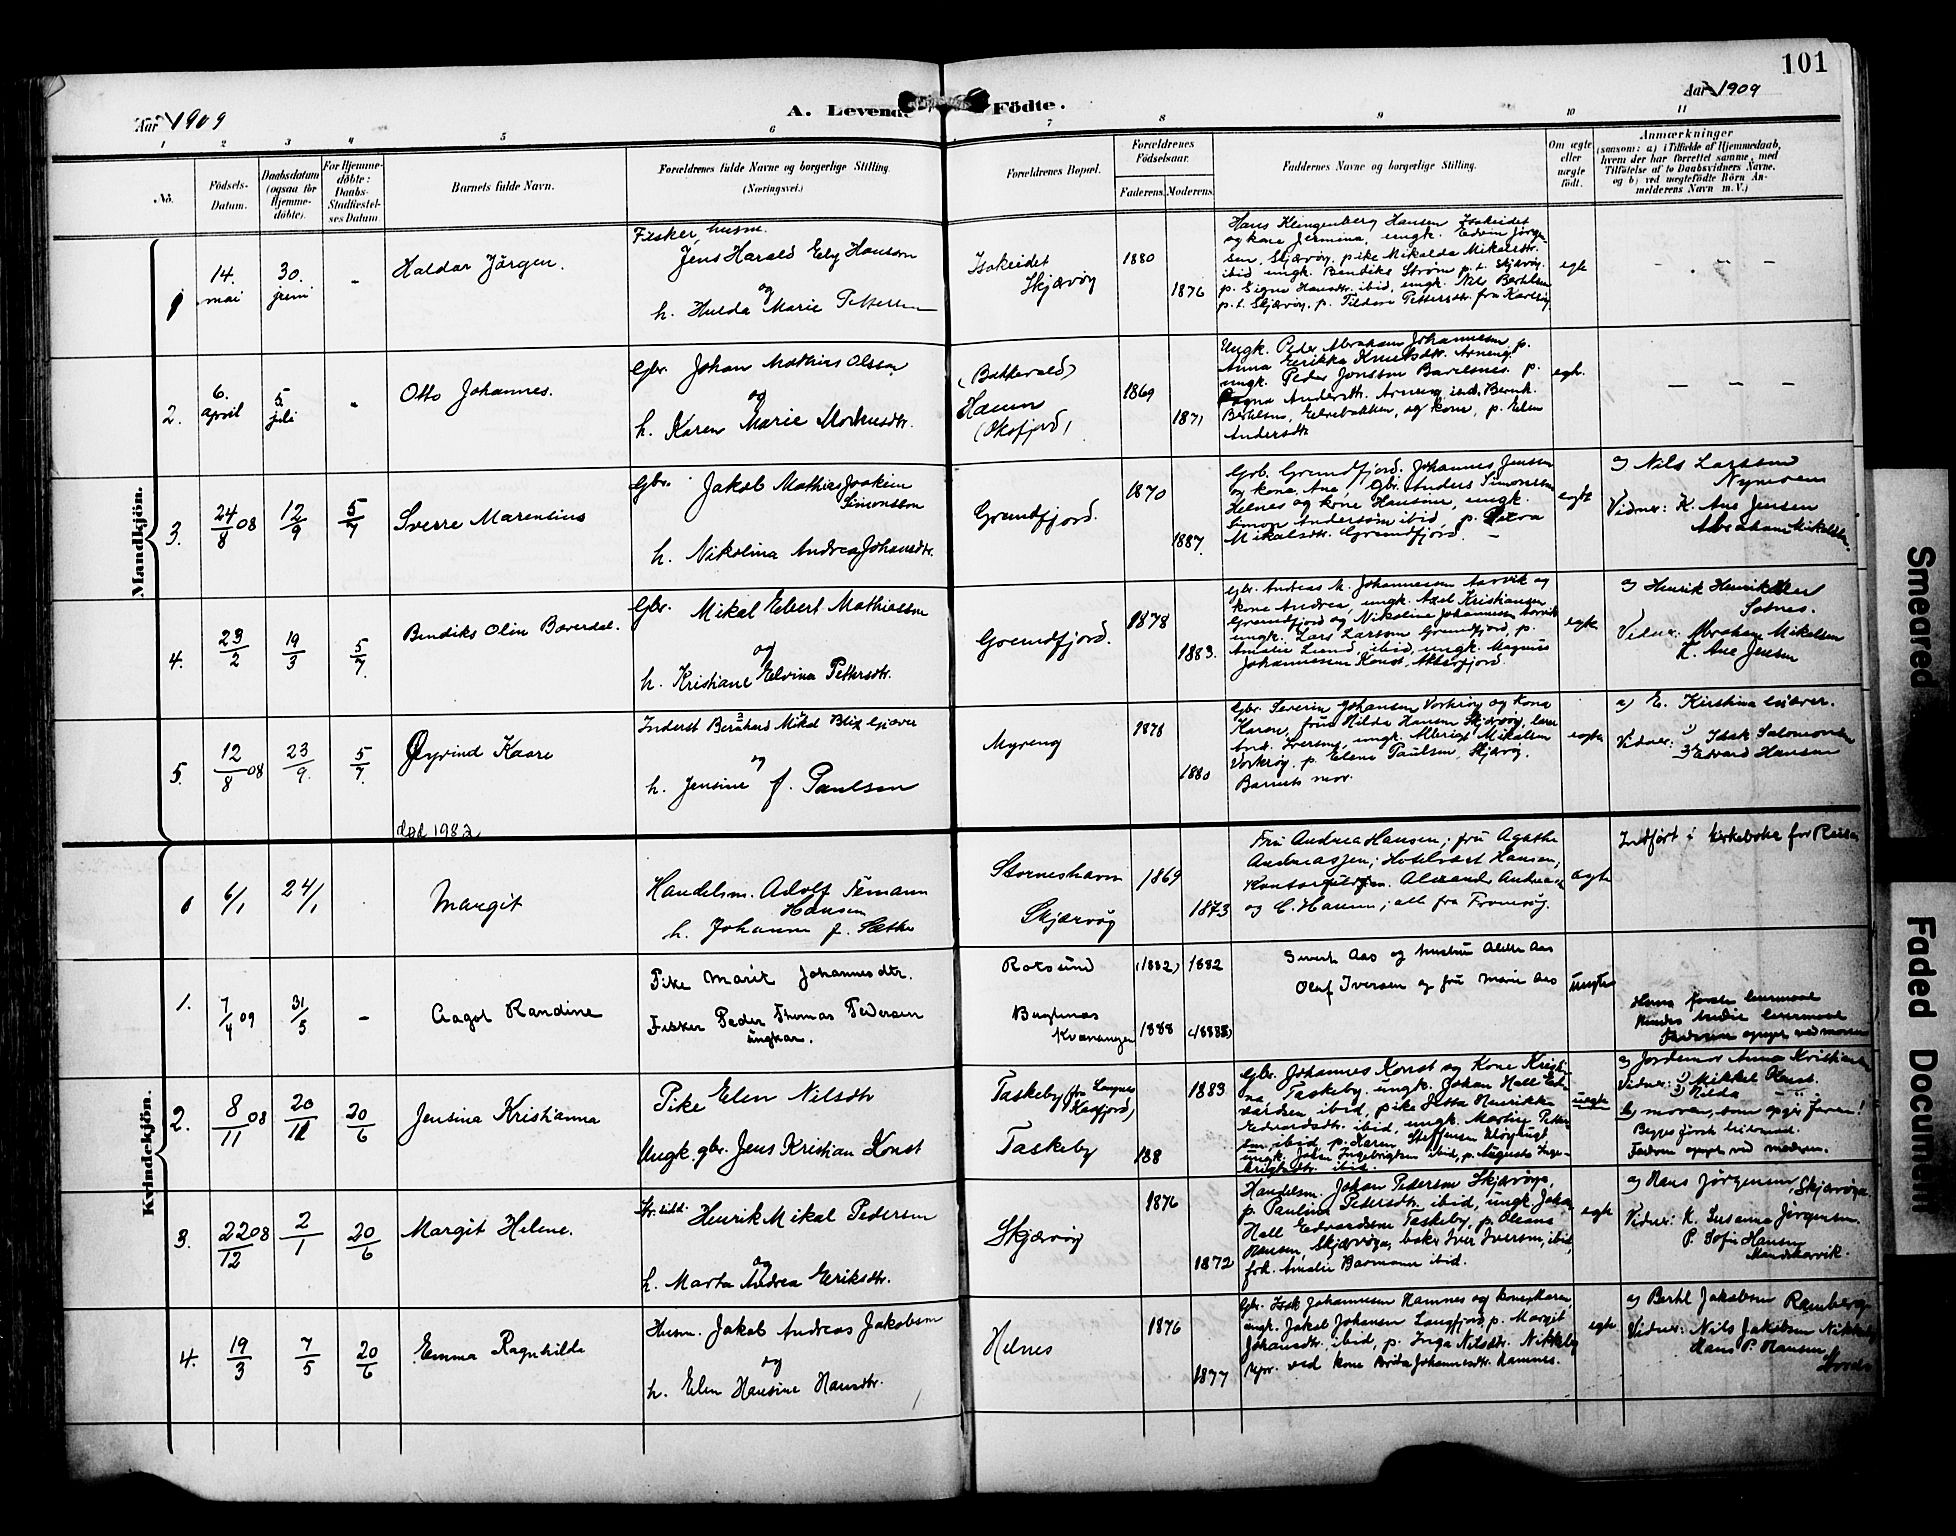 101
Aar 1909
A. Levende Födte.
Aar 1909
1 2 3 4 5 6 7 8 9 10 11
No.
Födsels-
Datum.
Daabsdatum
(ogsaa for
Hjemme-
döbte).
For Hjemme-
döbte:
Daabs-
Stadfæstel-
ses Datum
Barnets fulde Navn.
Forældrenes fulde Navne og borgerlige Stilling.
(Næringsvei.)
Forældrenes Bopæl.
Forældrenes
Födselsaar.
Faderens.
Moderens.
Faddernes Navne og borgerlige Stilling.
Om ægte
eller
uægte
født.
Anmærkninger
(saasom: a) i Tilfælde af Hjemmedaab,
hvem der har forrettet samme, med
Tilföielse af to Daabsvidners Navne,
og b) ved uægtefödte Börn An-
melderens Navn m. V.)
Mandkjön.
1
14.
mai
30.
juni
-
Haldor Jörgen.
Fisker, husm.
Jens Harald Ely Hansen
og
h. Hulda Marie Pettersen
Isakeidet
Skjærvöy
1880
1876
Hans Klingenberg Hansen Isakeidet
og kone Jermina, ungk. Edvin Jörgen-
sen, Skjærvöy, pike Mikalda Mikalsdtr.
ibid ungk. Bendiks Strøm p.t. Skjærvöy.
p. Signe Hansdtr. ibid, ungk. Nils Bertelsen
p.t. Skjærvöy, p. Tildine Pettersdtr. fra Karlsöy.
egte
- - - -
2.
6.
april
5.
juli
-
Otto Johannes.
Gbr. Johan Mathias Olsen
og
h. Karen Marie Mortensdtr.
Hamn
(Oksfjord)
1869
1871
Ungk. Peder Abraham Johannesen, p.
Anna Erikka Knutsdtr. Arneng,
ungk. Peder Jensen Bavelsnes. p.
Andersdtr. Arneng ibid. Bernt.
Bertelsen, og kone, p. Elen
Andersdtr
egte.
- - -
3.
24/8 08
12/9
5/7
Sverre Marentius
Gbr. Jakob Mathias Joakim
Simonsen
h. Nikolina Andrea Johansdtr.
Grundfjord.
1870
1887.
Grb. Grundfjord. Johannes Jensen
og kona Ane, Gbr. Anders Simonsen
Helnes og kone Hansine, ungk.
Simon Andersen ibid, p. Petra
Mikalsdtr. Grundfjord. -
egte
a) Nils Larssen
Nymoen
Vidner: K. Ane Jensen
Abraham Mikalsen.
4.
23/2
19/3
5/7.
Bendiks Olin Baverdal.
Gbr. Mikal Edvert Mathiassen
og
h. Kristiane Elvina Pettersdtr.
Grundfjord.
1878
1883.
Gbr. Andreas M. Johannessen Aarvik og
kone Andrea, ungk. Axel Kristiansen
Grundfjord og Nikoline Johannesen Aarvik
ungk. Lars Larsen Grundfjord, p.
Amalie Lund, ibid, ungk. Magnus
Johannessen Konst,
egte
a) Henrik Henriksen
Satnes.
Vidner: Abraham Mikalsen
K. Ane Jensen
5.
12/8 08
23/9.
5/7.
Øyvind Kaare
død 1982
Inderst Bernhard Mikal Blix Giæver
og
h. Jensine f. Paulsen
Myreng
1878
1880
Gbr. Severin Johansen Vorkröy og kona
Karen, frue Hilda Hansen Skjærvöy, lærer
And. Iversen, ungk. Albrigt Mikalsen
Vorkröy. p. Elene Paulsen, Skjærvöy.
Barnets mor.
egte
a) E. Kirstina Giæver.
Vidner: 1) Isak Salomonsen
2) Edvard Hansen
Kvindekjön.
1
6/1
24/1
Margit
Handelsm. Adolf Temann
Hansen
h. Johanne f. Sæther
Storneshavn
Skjærvöy
1869
1873
Fru Andrea Hansen; fru Agathe
Andreassen; Hotelvært Hansen;
Andreas
og C. Hansen; alle fra Tromsøy.
ægte
Indført i kirkeboka for Reisen
1.
7/4 09
31/5
-
Aagot Randine
Pike Marit Johannesdtr.
Fisker Peder Thomas Pedersen
ungkar.
Rotsund
Kvænangen
(1882)
1888
1882
(1888)
Sivert Aas og hustru Alette Aas
Oluf Iversen og fru Marie Aas
uægte
Hans første leiermaal
Hendes tredie leiermaal
Faderen opgit ved moren
2.
8/11 08
20/12
20/6
Jensina Kristianna
Pike Elen Nilsdtr
Ungk. gbr. Jens Kristian Konst
Taskeby (fra Langnes
Kaafjord)
Taskeby
188
1883
Gbr. Johannes Konst og Kone Kristi-
na Taskeby. ungk. Johan Hall Ed-
vardsen ibid, pike Jetta Henrikke
Edvardsdtr. ibid, ungk. Martin Petter-
sen ibid p. Karen Steffensen
ungk. Johan Ingebrigtsen ibid, p. Augusta Inge-
brigtsdtr. ibid.
uægte
a) Jordemor Anna Kristiansen
Vidner: 1) Mikkel Konst.
2) Hilda "
b) moren, som opgir faren!
Begges første leiermaal.
Faderen opgit ved moderen.
3.
22/12 08
2/1
20/6
Margit Helene.
Henrik Mikal Pedersen
og
h. Marta Andrea Eriksdtr.
Skjærvöy
1876
1872
Handelsm. Johan Pedersen Skjærvöy,
p. Paulina Pedersdtr. ibid, ungk Johan
Hall Edvardsen Taskeby, p. Oleana
Hansen, Skjærvöy, baker Iver Iversen, ibid,
frk. Amalie Barmann ibid.
egte
a) Hans Jörgensen, Skjærvöy.
Vidner: K. Susanna Jörgensen.
P. Sofie Hansen
4.
19/3
7/5
20/6
Emma Ragnhilda
Husm. Jakob Andreas Jakobsen
og
h. Elen Hansine Hansdtr.
Helnes
1876
1877
Gbr. Isak Johannesen Hamnes og kone Maren,
ungk. Jakob Johansen Langfjord, p. Margit
Johansdtr. ibid, p. Inga Nilsdtr. Nikkeby
Gbr. ved kone Berta Johannesdtr. Hamnes.
egte
a) Bertel Jakobsen Ramberg.
Vidner: Nils Jakobsen Nikkeby
Hans P. Hansen
Smeared
Faded Document